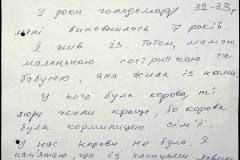 У роки голодомору 32-33р
мені виповнилось 7 років.
Я жив із татом, мамою,
маленькою сестричкою та
бабусею, яка жила із нами.
У кого була корова, ті
люди жили краще, бо корова
була кормилицею сім'ї.
У нас корови не було. Я
пам'ятаю, що із хлопцями ловили